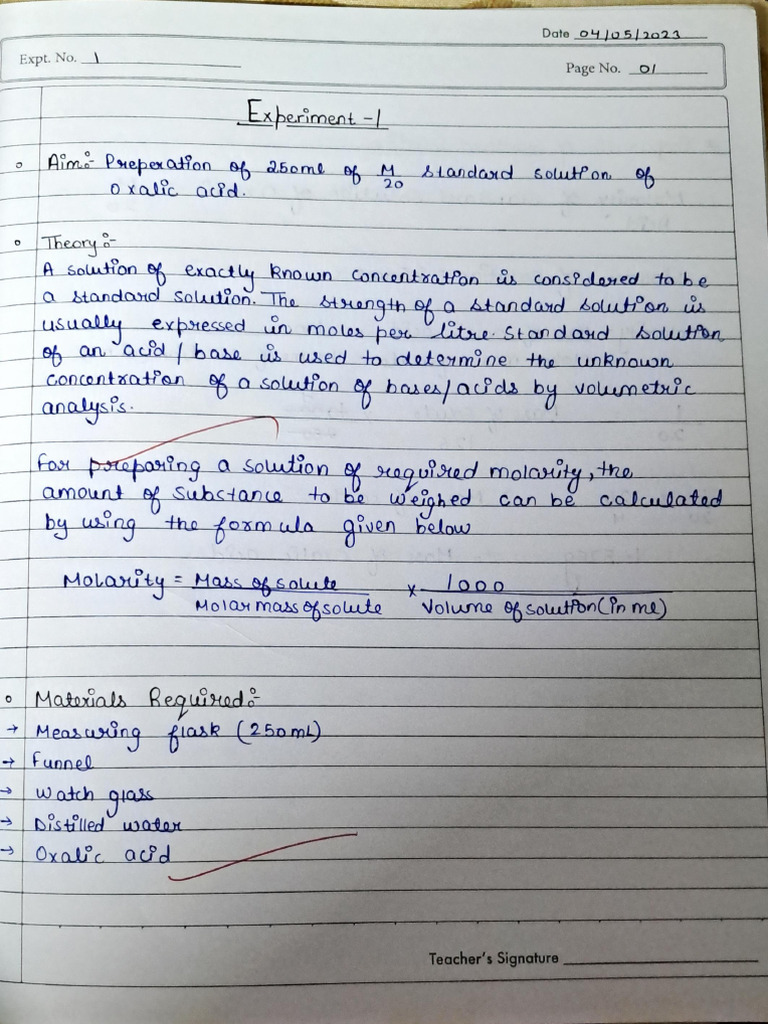 Date 04/05/2023
Expt. No. 1
Page No. 01
Experiment-1
Aim:- Preperation of 250ml of M/20 standard solution of
Oxalic acid.
Theory:-
A solution of exactly known concentration is considered to be
a standard solution. The strength of a standard solution is
usually expressed in moles per litre. Standard solution
of an acid/base is used to determine the unknown
concentration of a solution of bases/acids by volumetric
analysis.
For preparing a solution of required molarity, the
amount of substance to be weighed can be calculated
by using the formula given below
Molarity = Mass of solute × 1000
Molar mass of solute Volume of solution (in ml)
Materials Required:-
→ Measuring flask (250mL)
→ Funnel
→ Watch glass
→ Distilled water
→ Oxalic acid
Teacher's Signature